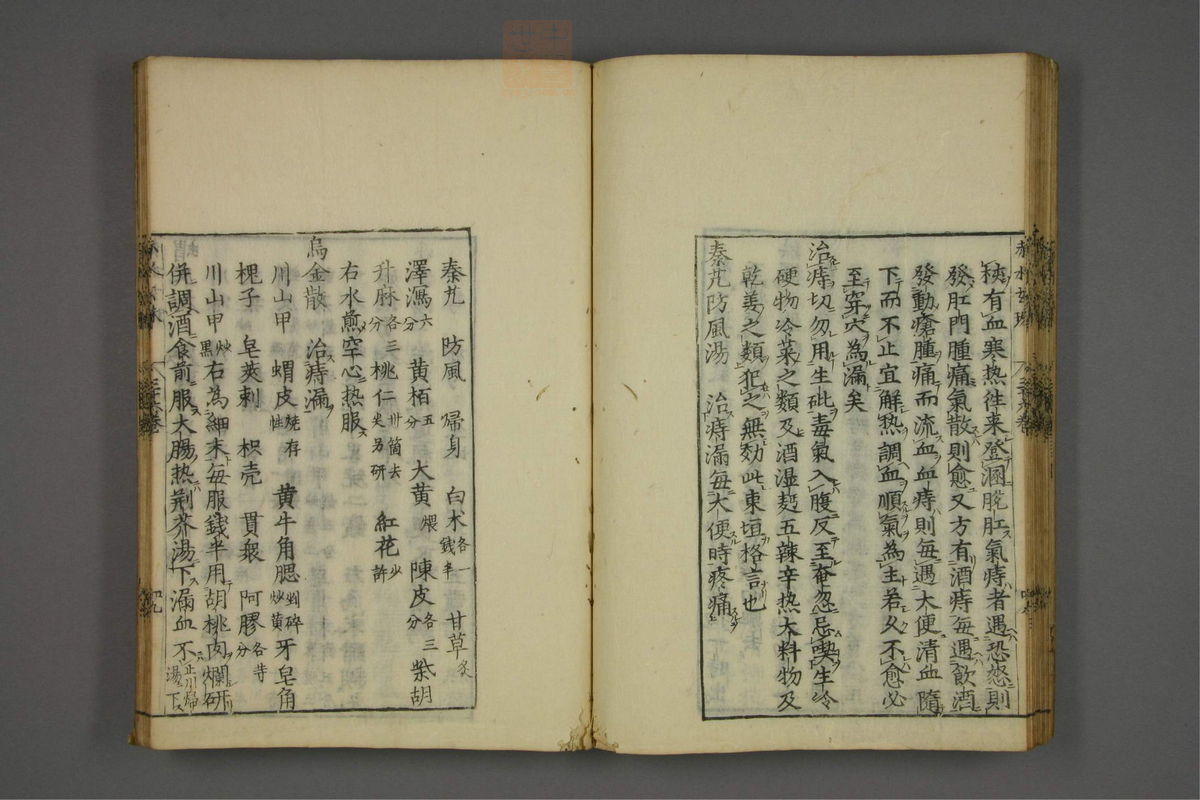 穢有血寒热往来登溷脱肛氣痔者遇恐怒則
發肛門腫痛氣散則愈又方有酒痔毎遇飲酒
發動瘡腫痛而流血血痔則毎遇大便清血隨
下而不止宜解热調血順氣為主若久不愈必
至穿穴為漏矣
治痔切勿用生砒毒氣入腹反至奄忽忌喫生冷
硬物冷菜之類及酒湿麪五辣辛热大料物及
乾姜之類犯之無効此東垣格言也
秦艽防風湯 治痔漏毎大便時疼痛
秦艽 防風 㱕身 白术各一錢半 甘草炙
澤瀉六分 黄栢五分 大黄煨 陳皮各三分 柴胡
升麻各三分 桃仁卅箇去尖另研 紅花少許
右水煎空心热服
烏金散 治痔漏
川山甲 蝟皮燒存性 黄牛角腮剉碎炒黄 牙皂角
槐子 皂莢刺 枳壳 貫衆 阿膠各等分
川山甲炒黒右為細末毎服錢半用胡桃肉爛研
併調酒食前服大腸热荆芥湯下漏血不止川㱕湯下